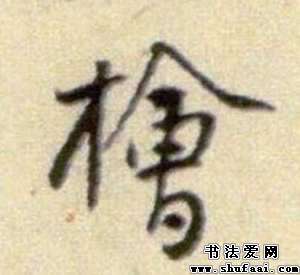 檜
书法爱网
www.shufaai.com